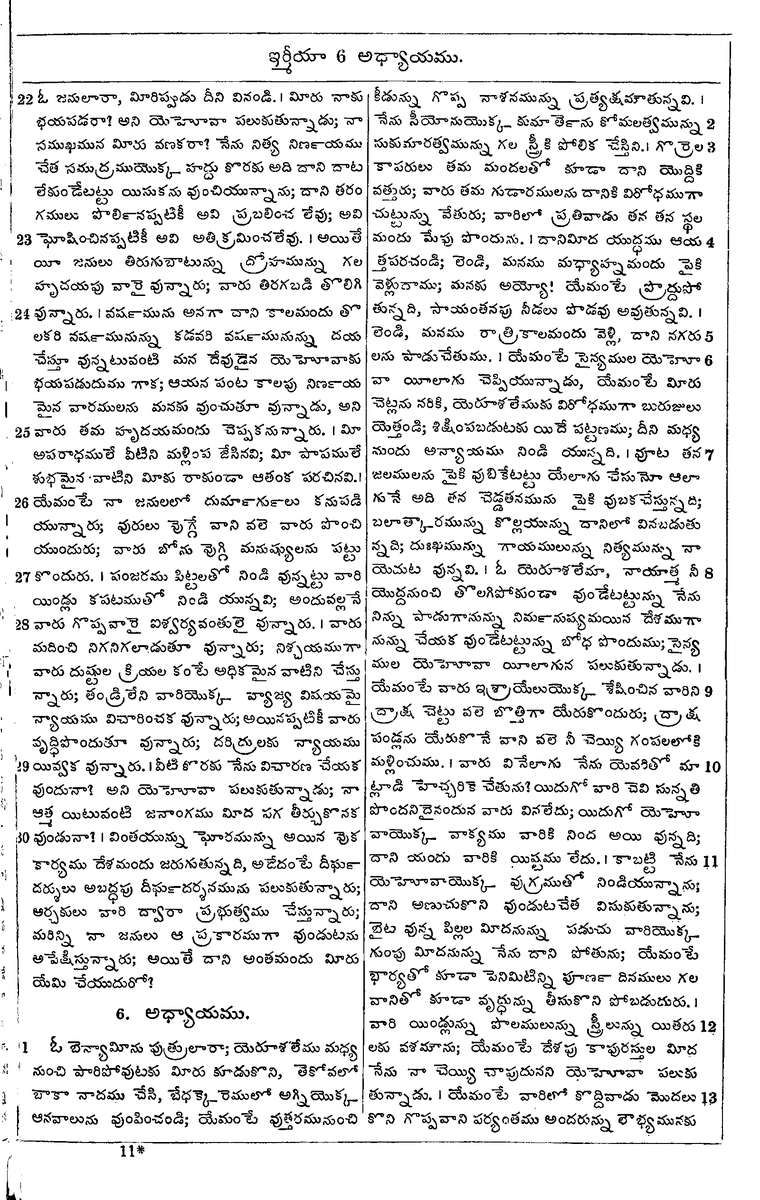 ఇర్మీయా 6 అధ్యాయము.
22 ఓ జనులారా, మీరిప్పుడు దీని వినండి. । మీరు నాకు
భయపడరా? అని యెహోవా పలుకుతున్నాడు; నా
సముఖమున మీరు వణకరా? నేను నిత్య నిర్ణయము
చేత సముద్రముయొక్క హద్దు కొరకు అది దాని దాట
లేకుండేటట్టు యిసుకను వుంచియున్నాను; దాని తరం
గములు పొర్లినప్పటికీ అవి ప్రబలించ లేవు; అవి
23 ఘోషించినప్పటికీ అవి అతిక్రమించలేవు. । అయితే
యీ జనులు తిరుగుబాటున్ను ద్రోహమున్ను గల
హృదయపు వారై వున్నారు; వారు తిరగబడి తొలిగి
24 వున్నారు. । వర్షమును అనగా దాని కాలమందు తొ
లకరి వర్షమునున్ను కడవరి వర్షమునున్ను దయ
చేస్తూ వున్నటువంటి మన దేవుడైన యెహోవాకు
భయపడుదుము గాక; ఆయన పంట కాలపు నిర్ణయ
మైన వారములను మనకు వుంచుతూ వున్నాడు, అని
25 వారు తమ హృదయమందు చెప్పకనున్నారు. । మీ
అపరాధములే వీటిని మళ్లింప జేసినవి; మీ పాపములే
శుభమైన వాటిని మీకు రాకుండా ఆతంక పరచినవి.।
26 యేమంటే నా జనులలో దుర్మార్గులు కనుపడి
యున్నారు; వురులు వొగ్గే వాని వలె వారు పొంచి
యుందురు; వారు బోను వొగ్గి మనుష్యులను పట్టు
27 కొందురు. । పంజరము పిట్టలతో నిండి వున్నట్టు వారి
యిండ్లు కపటముతో నిండి యున్నవి; అందువల్లనే
28 వారు గొప్పవారై ఐశ్వర్యవంతులై వున్నారు. । వారు
మదించి నిగనిగలాడుతూ వున్నారు; నిశ్చయముగా
వారు దుష్టుల క్రియల కంటే అధికమైన వాటిని చేస్తు
న్నారు; తండ్రిలేని వారియొక్క వ్యాజ్య విషయమై
న్యాయము విచారించక వున్నారు; అయినప్పటికీ వారు
వృద్ధిపొందుతూ వున్నారు; దరిద్రులకు న్యాయము
29 యివ్వక వున్నారు. । వీటి కొరకు నేను విచారణ చేయక
వుందునా? అని యెహోవా పలుకుతున్నాడు; నా
ఆత్మ యిటువంటి జనాంగము మీద పగ తీర్చుకొనక
30 వుండునా? । వింతయున్ను ఘోరమున్ను అయిన వొక
కార్యము దేశమందు జరుగుతున్నది, అదేదంటే దీర్ఘ
దర్శులు అబద్ధపు దీర్ఘదర్శనమును పలుకుతున్నారు;
ఆర్చకులు వారి ద్వారా ప్రభుత్వము చేస్తున్నారు;
మరిన్ని నా జనులు ఆ ప్రకారముగా వుండుటను
అపేక్షిస్తున్నారు; అయితే దాని అంతమందు మీరు
యేమి చేయుదురో?
6. అధ్యాయము.
1 ఓ బెన్యామీను పుత్రులారా; యెరూశలేము మధ్య
నుంచి పారిపోవుటకు మీరు కూడుకొని, తెకోవలో
బాకా నాదము చేసి, బేథక్కెరెములో అగ్నియొక్క
ఆనవాలును వుంపించండి; యేమంటే వుత్తరమునుంచి
కీడున్ను గొప్ప నాశనమున్ను ప్రత్యక్షమౌతున్నవి. ।
నేను సీయోనుయొక్క కుమార్తెను కోమలత్వమున్ను 2
సుకుమారత్వమున్ను గల స్త్రీకి పోలిక చేస్తిని. । గొర్రెల 3
కాపరులు తమ మందలతో కూడా దాని యొద్దికి
వత్తురు; వారు తమ గుడారములను దానికి విరోధముగా
చుట్టున్ను వేతురు; వారిలో ప్రతివాడు తన తన స్థల
మందు మేపు పొందును. । దానిమీద యుద్ధము ఆయ 4
త్తపరచండి; లెండి, మనము మధ్యాహ్నమందు పైకి
వెళ్లుదాము; మనకు అయ్యో! యేమంటే ప్రొద్దుపో
తున్నది, సాయంతనపు నీడలు పొడవు అవుతున్నవి. ।
లెండి, మనము రాత్రికాలమందు వెళ్లి, దాని నగరు 5
లను పాడుచేతుము. । యేమంటే సైన్యముల యెహో 6
వా యీలాగు చెప్పియున్నాడు, యేమంటే మీరు
చెట్లను నరికి, యెరూశలేముకు విరోధముగా బురుజులు
యెత్తండి; శిక్షింపబడుటకు యిదే పట్టణము; దీని మధ్య
నుందు అన్యాయము నిండి యున్నది. । వూట తన 7
జలములను పైకి వుబికేటట్టు యేలాగు చేసునో ఆలా
గునే అది తన చెడ్డతనమును పైకి వుబకచేస్తున్నది;
బలాత్కారమున్ను కొల్లయున్ను దానిలో వినబడుతు
న్నది; దుఃఖమున్ను గాయములున్ను నిత్యమున్ను నా
యెదుట వున్నవి. । ఓ యెరూశలేమా, నాయాత్మ నీ 8
యొద్దనుంచి తొలగిపోకుండా వుండేటట్టున్ను నేను
నిన్ను పాడుగానున్ను నిర్మనుష్యమయిన దేశముగా
నున్ను చేయక వుండేటట్టున్ను బోధ పొందుము; సైన్య
ముల యెహోవా యీలాగున పలుకుతున్నాడు. ।
యేమంటే వారు ఇశ్రాయేలుయొక్క శేషించిన వారిని 9
ద్రాక్ష చెట్టు వలె బొత్తిగా యేరుకొందురు; ద్రాక్ష
పండ్లను యేరుకొనే వాని వలె నీ చెయ్యి గంపలలోకి
మళ్లించుము. । వారు వినేలాగు నేను యెవరితో మా 10
ట్లాడి హెచ్చరికె చేతును? యిదుగో వారి చెవి సున్నతి
పొందనిదైనందున వారు వినలేదు; యిదుగో యెహో
వాయొక్క వాక్యము వారికి నింద అయి వున్నది;
దాని యందు వారికి యిష్టము లేదు. । కాబట్టి నేను 11
యెహోవాయొక్క వుగ్రముతో నిండియున్నాను;
దాని అణుచుకొని వుండుటచేత విసుకుతున్నాను;
బైట వున్న పిల్లల మీదనున్ను పడుచు వారియొక్క
గుంపు మీదనున్ను నేను దాని పోతును; యేమంటే
భార్యతో కూడా పెనిమిటిన్ని పూర్ణ దినములు గల
వానితో కూడా వృద్ధున్ను తీసుకొని పోబడుదురు. ।
వారి యిండ్లున్ను పొలములున్ను స్త్రీలున్ను యితరు 12
లకు వశమౌను; యేమంటే దేశపు కాపురస్తుల మీద
నేను నా చెయ్యి చాపుదునని యెహోవా పలుకు
తున్నాడు. । యేమంటే వారిలో కొద్దివాడు మొదలు 13
కొని గొప్పవాని పర్యంతము అందరున్ను లౌభ్యమునకు
11*